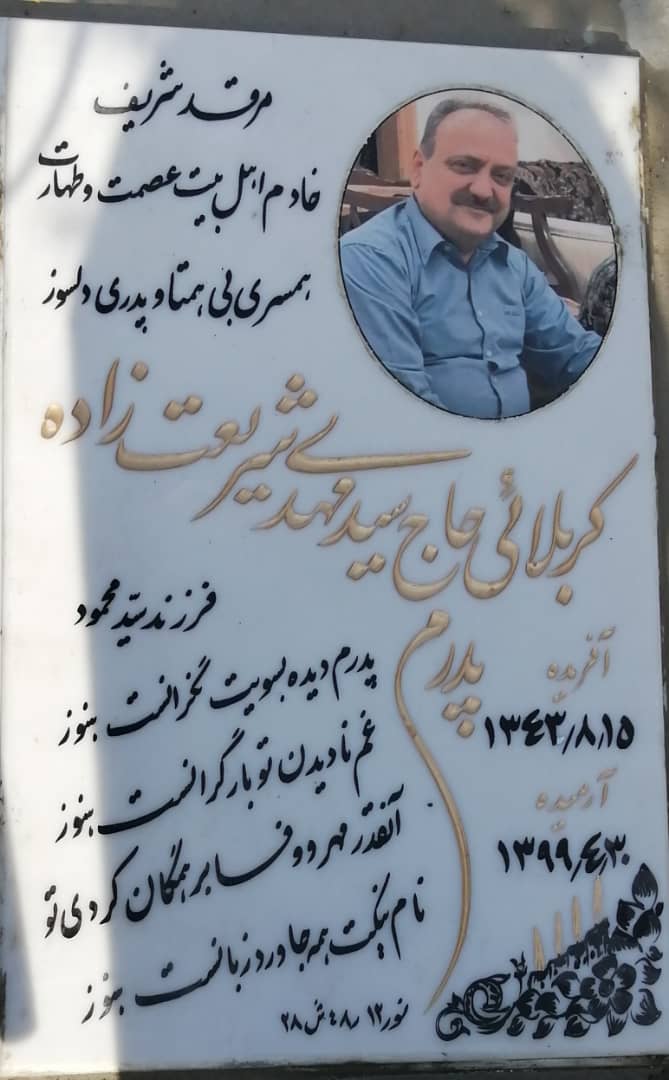 مرقد شریف
خادم اهل بیت عصمت و طهارت
همسری بی همتا و پدری دلسوز
کربلائی حاج سید مهدی شریعت زاده
فرزند سیّد محمود
آفریده
۱۳۴۳٫۸٫۱۵
آرمیده
۱۳۹۹٫۴٫۳۰
پدرم
پدرم دیده بسویت نگرانست هنوز
غم نادیدن تو بار گرانست هنوز
آنقدر مهر و وفا بر همگان کردی تو
نام نیکت همه جا ورد زبانست هنوز